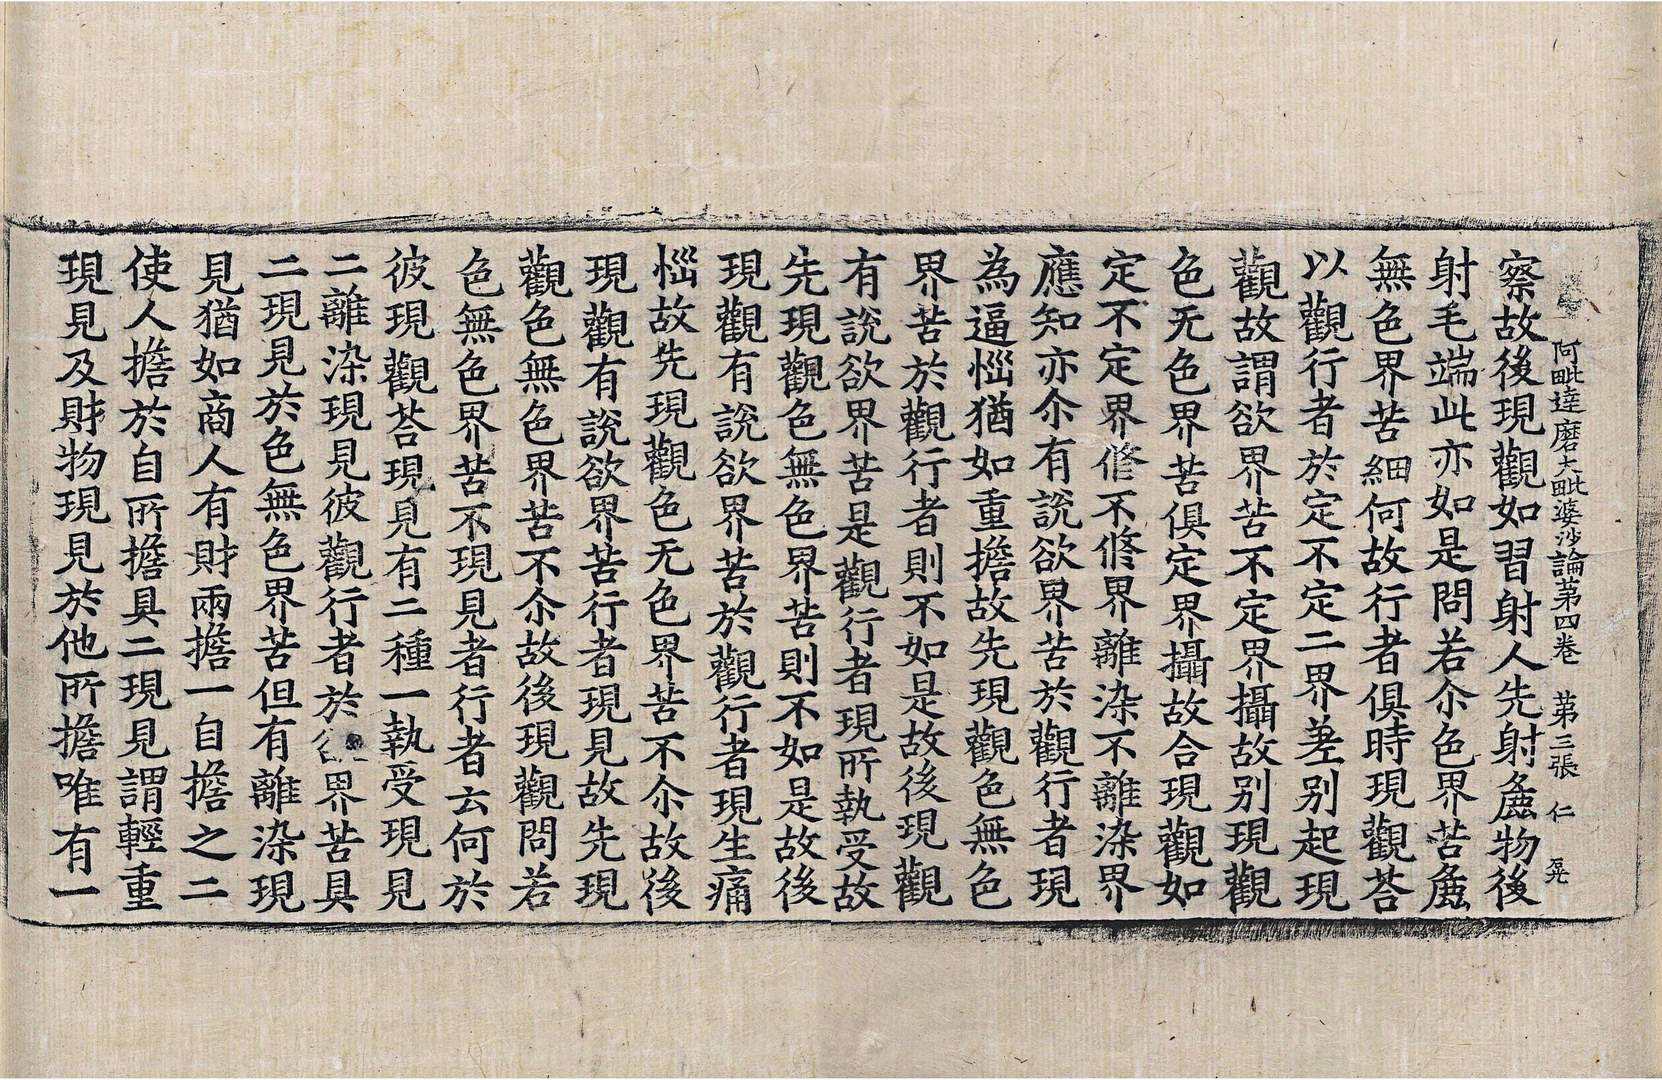 阿毗達磨大毗婆沙論第四卷　第三張　仁
察故後現觀如習射人先射麁物後
射毛端此亦如是問若尒色界苦麁
無色界苦細何故行者俱時現觀荅
以觀行者於定不定二界差别起現
觀故謂欲界苦不定界攝故别現觀
色无色界苦俱定界攝故合現觀如
定不定界修不修界離染不離染界
應知亦尒有說欲界苦於觀行者現
為逼惱猶如重擔故先現觀色無色
界苦於觀行者則不如是故後現觀
有說欲界苦是觀行者現所執受故
先現觀色無色界苦則不如是故後
現觀有說欲界苦於觀行者現生痛
惱故先現觀色无色界苦不尒故後
現觀有說欲界苦行者現見故先現
觀色無色界苦不尒故後現觀問若
色無色界苦不現見者行者云何於
彼現觀荅現見有二種一執受現見
二離染現見彼觀行者於欲界苦具
二現見於色無色界苦但有離染現
見猶如商人有財兩擔一自擔之二
使人擔於自所擔具二現見謂輕重
現見及財物現見於他所擔唯有一